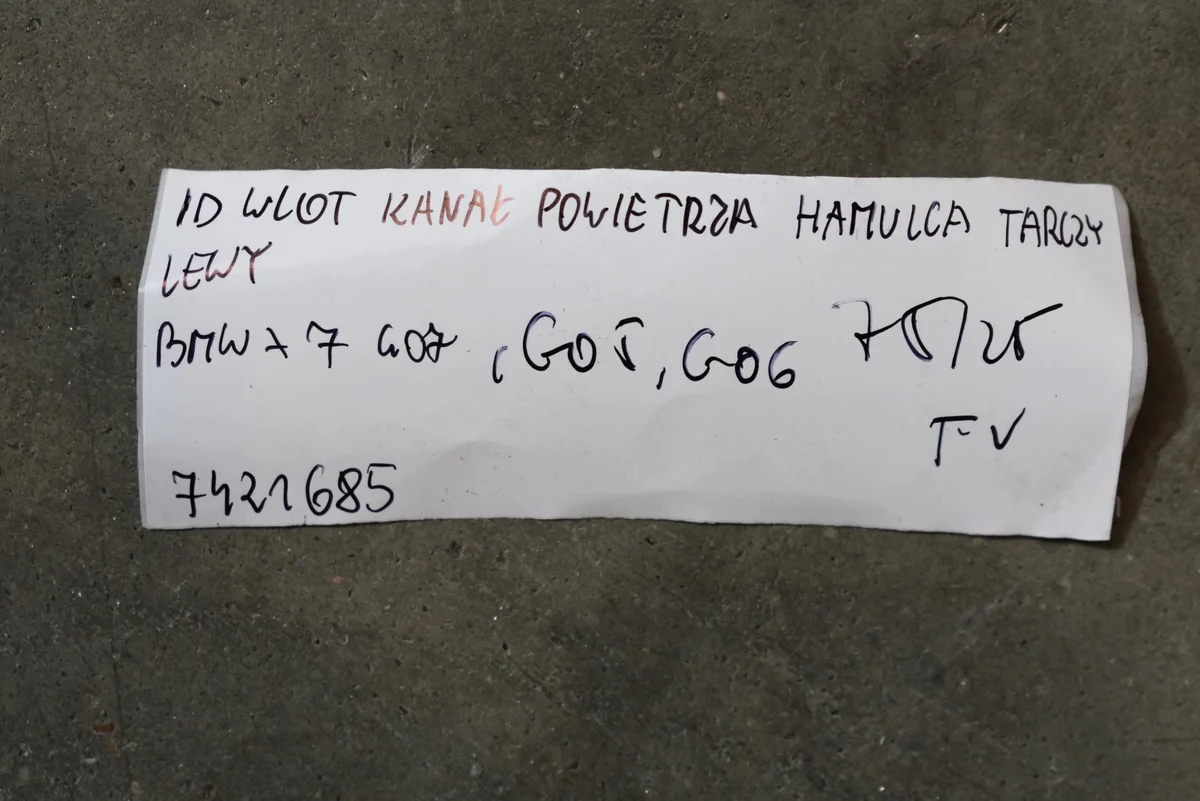 ID WLOT KANAŁ POWIETRZA HAMULCA TARCZY
LEWY
BMW X 7 G07, G05, G06 75/25
F-V
7421685